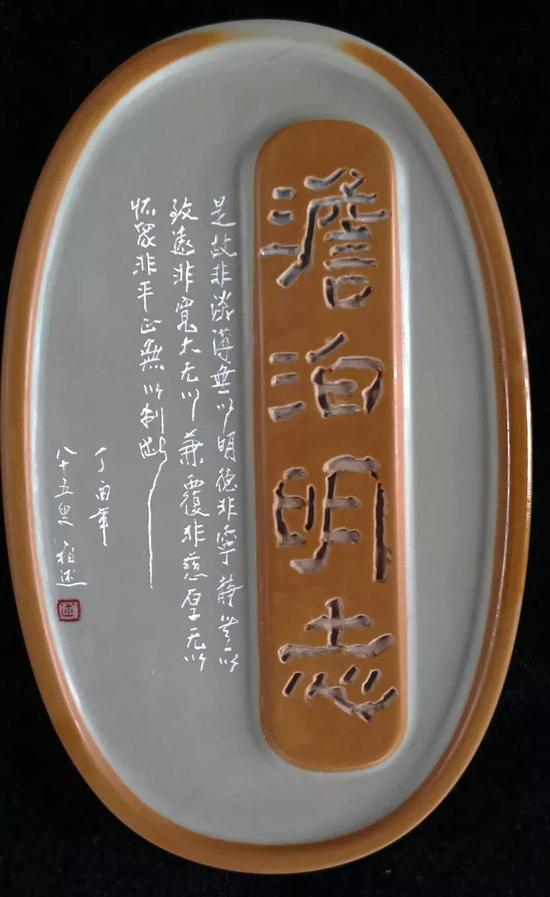 澹泊明志
是故非澹薄無以明德非寧靜無以
致遠非寬大无以兼覆非慈厚无以
怀眾非平正無以制斷
丁酉年
八十五叟祖述